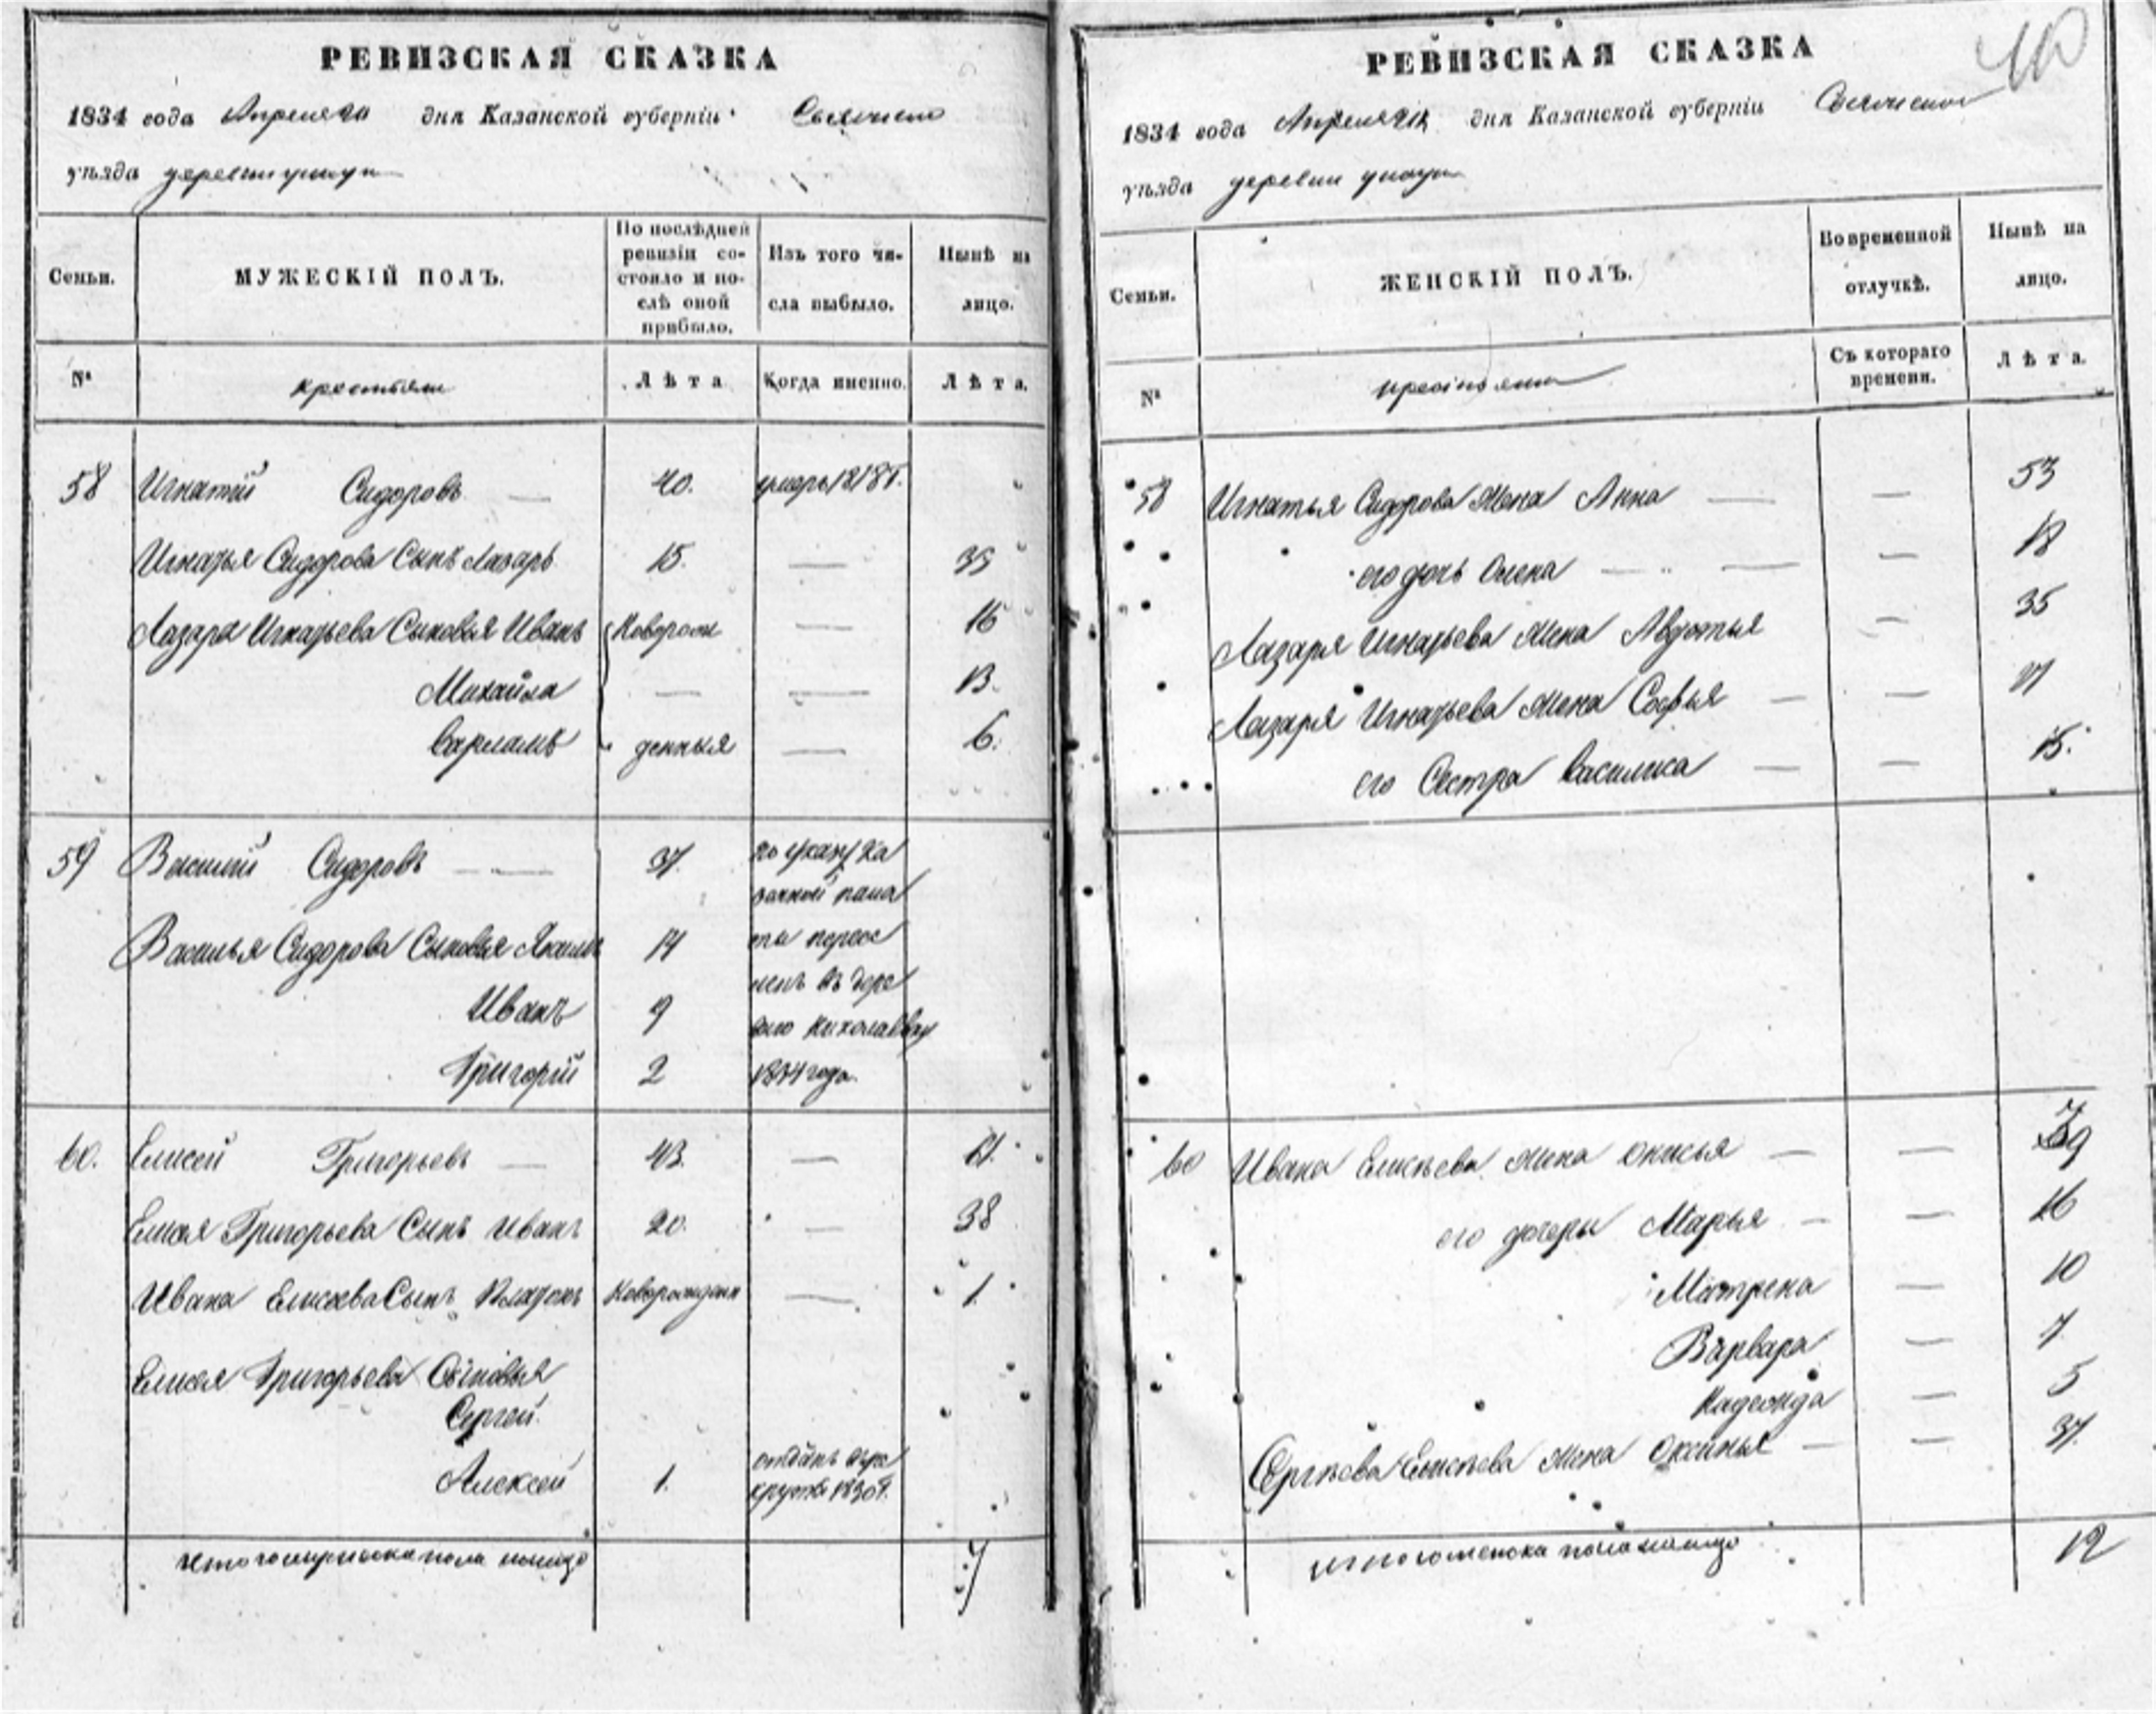 РЕВИЗСКАЯ СКАЗКА
1834 года Апреля дня Казанской губерніи
уѣзда деревни
Семьи. МУЖЕСКІЙ ПОЛЪ. По послѣдней ревизіи состояло и послѣ оной прибыло. Изъ того числа выбыло. Нынѣ на лицо.
№ крестьяне Лѣта Когда именно. Лѣта.
58 Игнатій Сидоровъ — 40. умеръ 1818 г.
Игнатья Сидорова Сынъ Лазарь 15. — 33
Лазаря Игнатьева Сыновья Иванъ Новорож — 16
Михайла — — 13.
Варламъ денныя — 6.
59 Василий Сидоровъ — 37. по указу Ка
зенной пала
Василья Сидорова Сыновья 14 ты перес
Иванъ 9 ленъ въ дере
вню Николаевку
Григорій 2 года.
60. Елисей Григорьевъ — 43. — 61.
Елисея Григорьева Сынъ Иванъ 20. — 38
Ивана Елисеева Сынъ Платонъ Новорожден — 1.
Елисея Григорьева Сыновья
Сергей.
Алексей 1. отданъ въ ре
круты 1830 г.
итого мужеска пола налицо 7
РЕВИЗСКАЯ СКАЗКА 40
1834 года Апреля дня Казанской губерніи
уѣзда деревни
Семьи. ЖЕНСКІЙ ПОЛЪ. Во временной отлучкѣ. Нынѣ на лицо.
№ крестьяне Съ котораго времени. Лѣта.
58 Игнатья Сидорова Жена Анна — — 53
его дочь Олена — — — 18
Лазаря Игнатьева Жена Авдотья — 35
Лазаря Игнатьева Жена Софья — —
его Сестра Василиса — — 15.
60 Ивана Елисѣева Жена — — 39
его дочери Марья — — 16
Матрена — 10
Варвара — 7
Надежда — 5
Сергѣева Елисѣева Жена Оксинья — — 37.
итого женска пола налицо 12